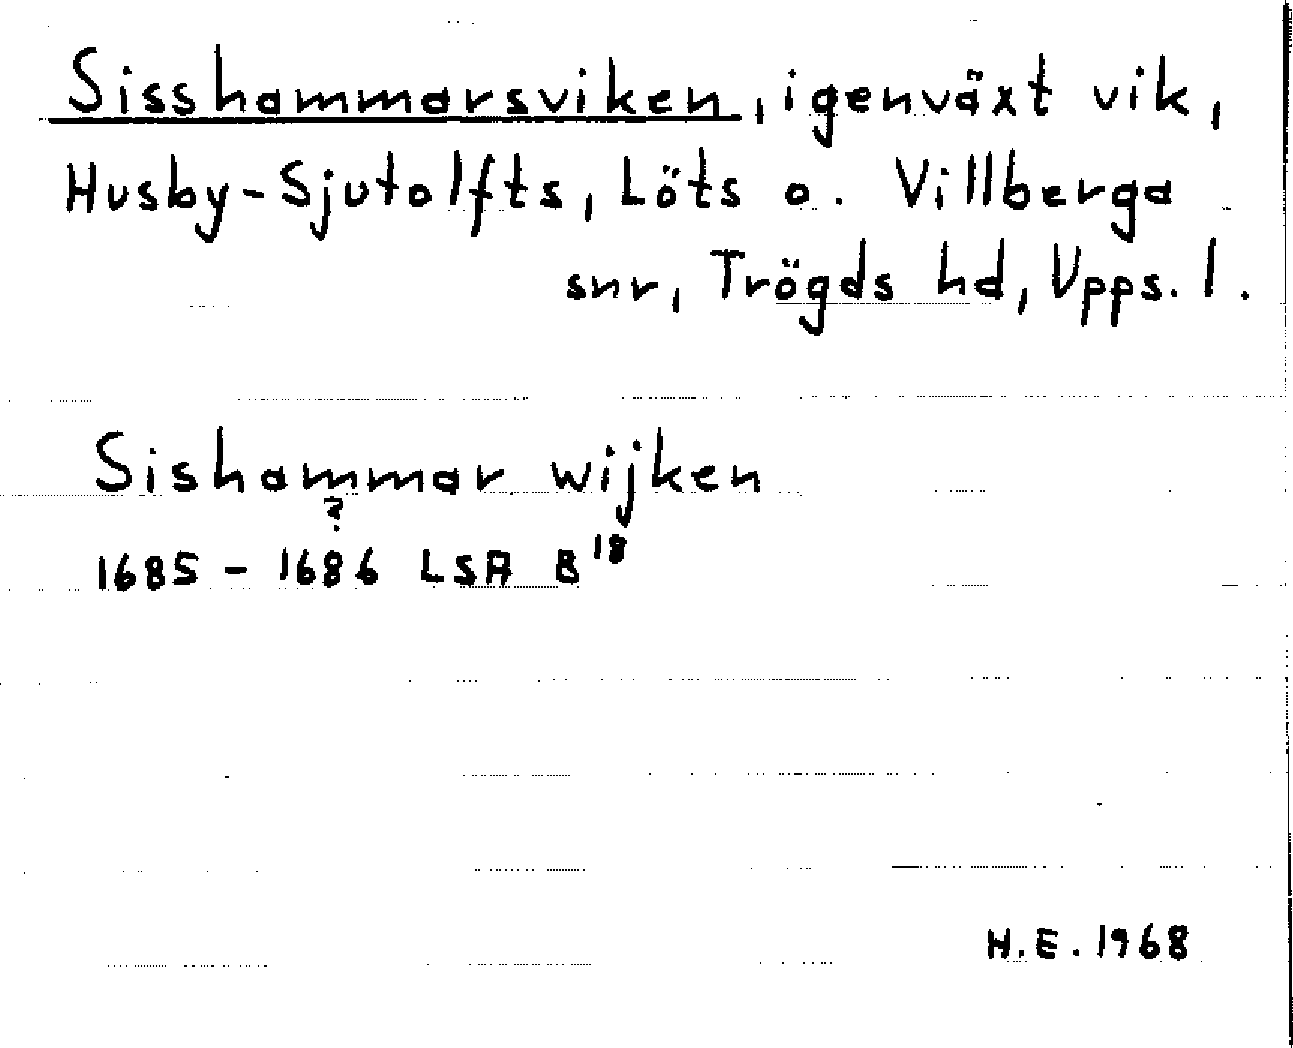 Sisshammarsviken, igenväxt vik,
Husby-Sjutolfts, Löts o. Villberga
snr, Trögds hd, Upps. l.
Sishammar wijken
?
1685 - 1686 LSA B18
H.E. 1968